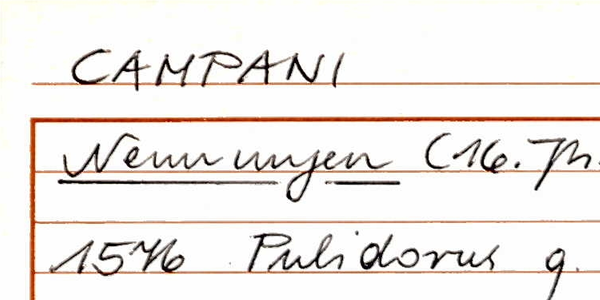 CAMPANI
Nennungen (16. Jh.
1576 Pulidorus q.